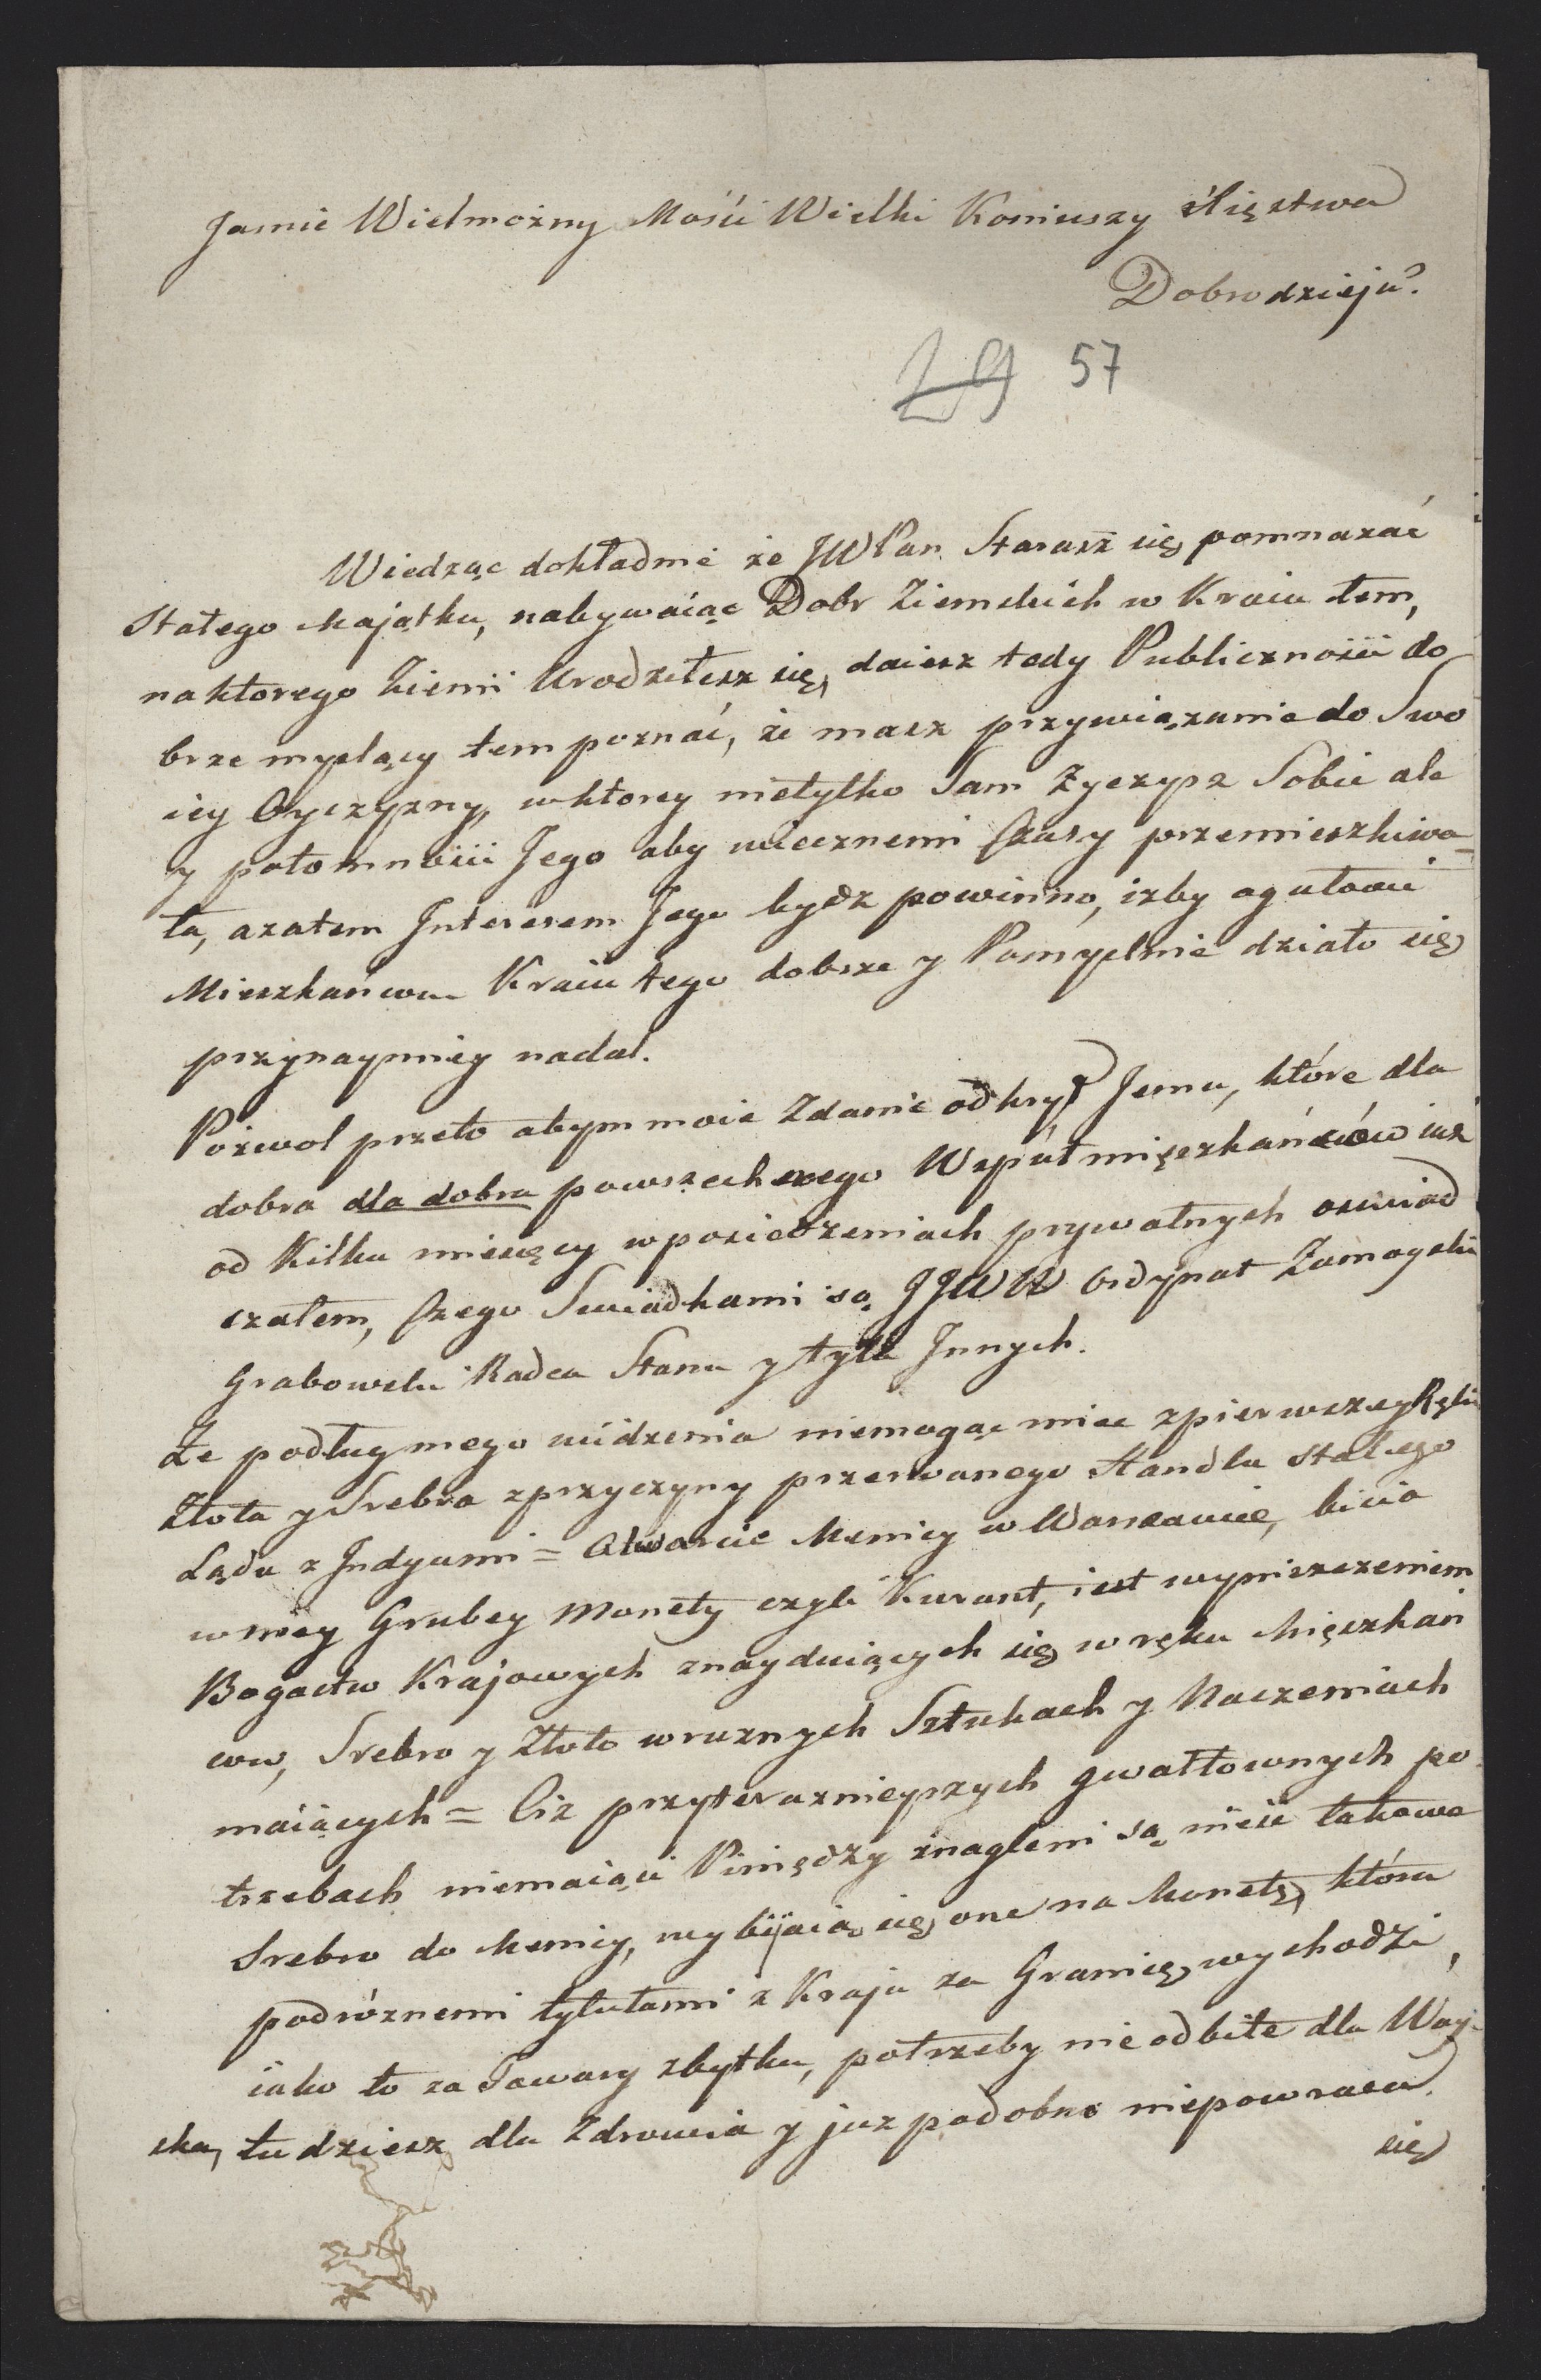 Jasnie Wielmożny Mości Wielki Koniuszy Xięztwa
Dobrodzieju.
29 57
Wiedząc dokładnie że JWPan Starasz się pomnazać
Stałego Majątku, nabywaiąc Dobr Ziemskich w Kraiu tem,
na ktorego Ziemi Urodziłesz się, daiesz tedy Publicznosci do
brze myslący tem poznać, że masz przywiązanie do Swo
iey Oyczyzny, w ktorey nietylko Sam Zyczysz Sobie ale
y potomności Jego aby wiecznemi Czasy przemieszkiwa-
ła, azatem Interesem Jego bydz powinno, izby ogułowi
Mieszkańcow Kraiu tego dobrze y Pomyslnie działo się
przynaymniey nadal.
Pozwol przeto abym moie Zdanie odkrył Jemu, które dla
dobra dla dobra powszechnego Wspułmięszkańców iuż
od Kilku miesięcy w posiedzeniach prywatnych oswiad
czałem, Czego Swiadkami są JJWW Ordynat Zamoyski
Grabowski Radca Stanu y tylu Innych.
Ze podług mego widzenia niemogąc miec z pierwszey Ręki
Złota y Srebra z przyczyny przerwanego Handlu Stałego
Lądu z Indyami = Otwarcie Menicy w Warszawie, bicia
w niey Grubey Monety czyli Kurant, iest wyniszczeniem
Bogactw Krajowych znayduiących się w ręku Mięszkań
cow, Srebro y Złoto w rużnych Sztukach y Naczeniach
maiących = Ciż przyteraznieyszych gwałtownych po
trzebach niemaiąci Piniędzy znagleni są nieść takowe
Srebro do Menicy, wybijaią się one na Monetę, która
podróznemi tytułami z Kraju za Granicę wychodzi,
iako to za Towary zbytku, potrzeby nieodbite dla Woy-
ska, tudziesz dla Zdrowia y juz podobno niepowraca
się